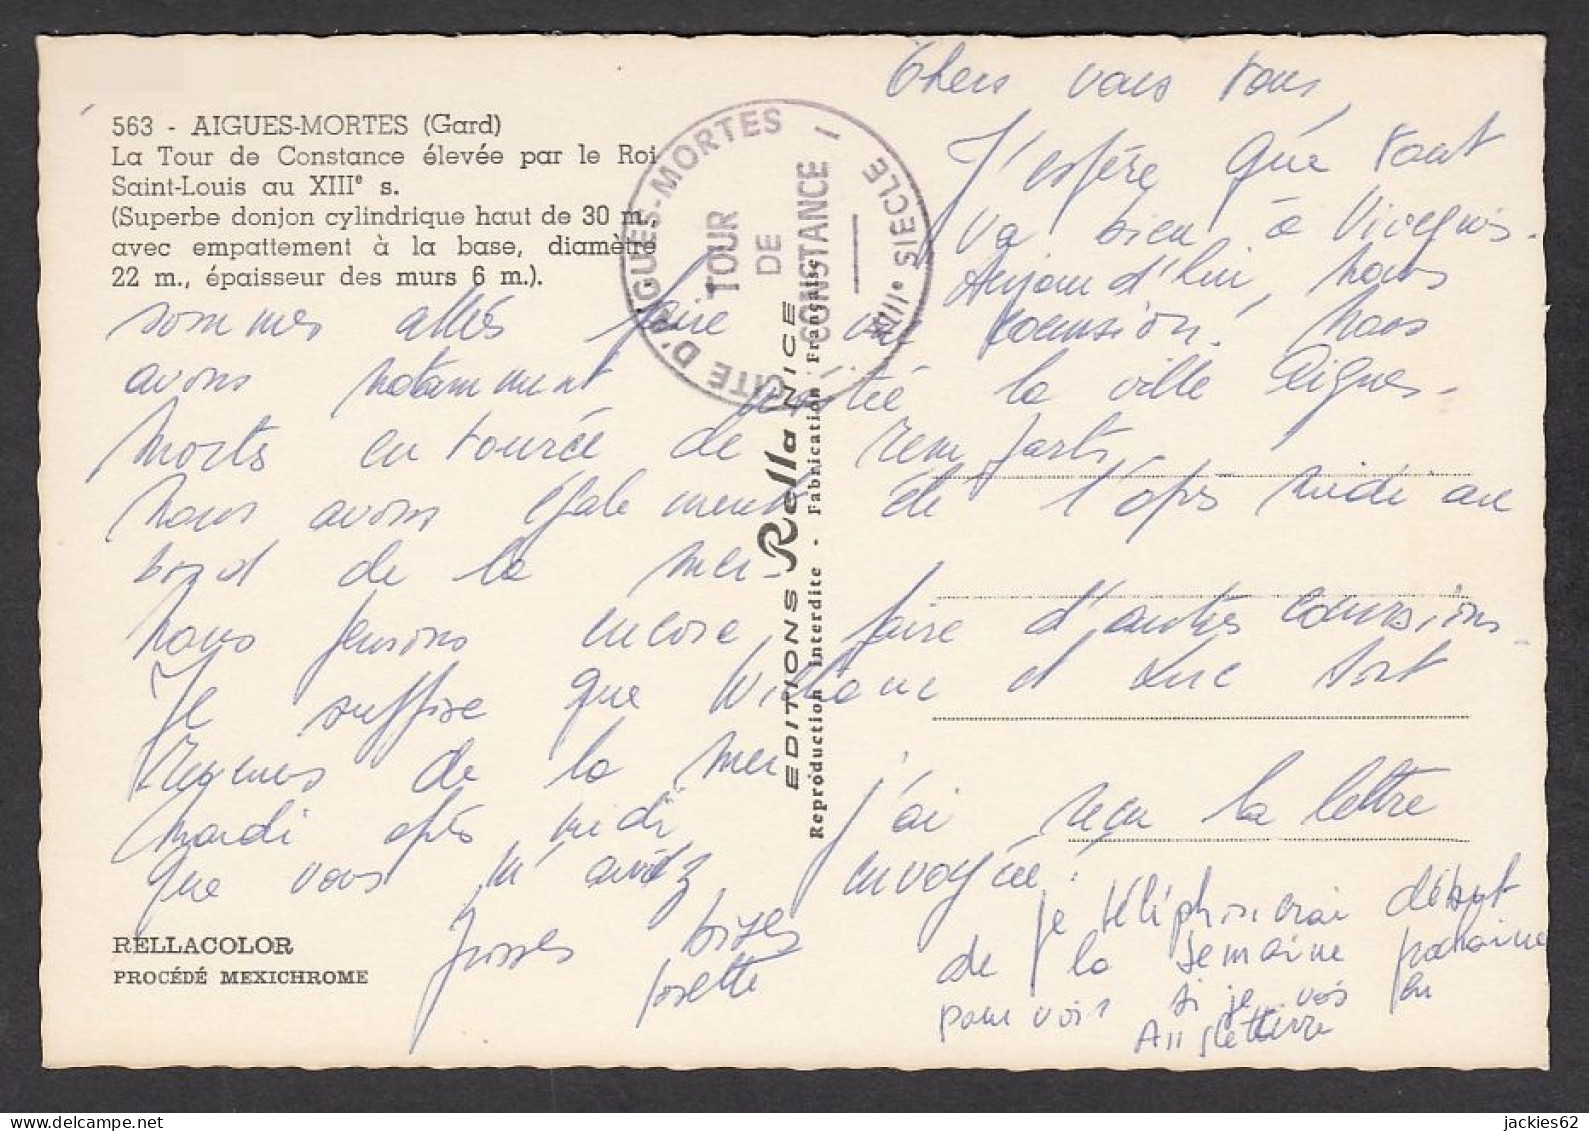 563 - AIGUES-MORTES (Gard)
La Tour de Constance élevée par le Roi
Saint-Louis au XIIIe s.
(Superbe donjon cylindrique haut de 30 m.,
avec empattement à la base, diamètre
22 m., épaisseur des murs 6 m.).
CITE D'AIGUES-MORTES
TOUR
DE
CONSTANCE
XIIIe SIECLE
EDITIONS Rella NICE
Reproduction interdite - Fabrication Française
Chers vous tous,
J'espère que tout
va bien à
Aujourd'hui, nous
sommes allés faire une
nous
avons notamment visité la ville Aigues-
Morts entourée de remparts.
nous avons également été l'après midi au
bord de la mer.
nous pensons encore faire d'autres
Je suppose que William et Luc sont
revenus de la mer
mardi après midi j'ai reçu la lettre
que vous m'aviez envoyée.
Je téléphonerai début
de la semaine prochaine
pour voir si je vais en
Angleterre
Grosses bises
Josette
RELLACOLOR
PROCÉDÉ MEXICHROME
jackies62